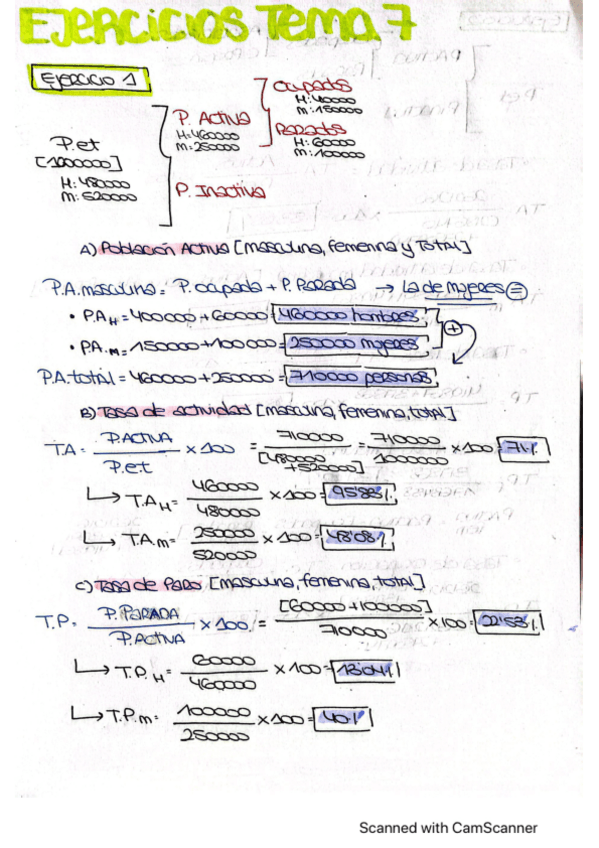 EJERCICIOS TEMA 7
EJERCICIO 1
P.et
[1000000]
H: 480000
M: 520000
P. Activa
H=460000
M=250000
P. Inactiva
Ocupados
H: 40000
M: 150000
Parados
H: 60000
M: 100000
A) Población Activa [masculina, femenina y Total]
P.A. masculina = P. ocupada + P. Parada → La de mujeres =
• P.A H = 400000 + 60000 = 460000 hombres
• P.A. M = 150000 + 100000 = 250000 mujeres
+
P.A. total = 460000 + 250000 = 710000 personas
B) Tasa de actividad [masculina, femenina, total]
TA = P.ACTIVA / P.et × 100 = 710000 / [480000 + 520000] = 710000 / 1000000 × 100 = 71%
T.A H = 460000 / 480000 × 100 = 95'83%
T.A. M = 250000 / 520000 × 100 = 48'08%
C) Tasa de Paro [masculina, femenina, total]
T.P = P. PARADA / P. ACTIVA × 100 = [60000 + 100000] / 710000 × 100 = 22'53%
T.P. H = 60000 / 460000 × 100 = 13'04%
T.P. M = 100000 / 250000 × 100 = 40%
Scanned with CamScanner